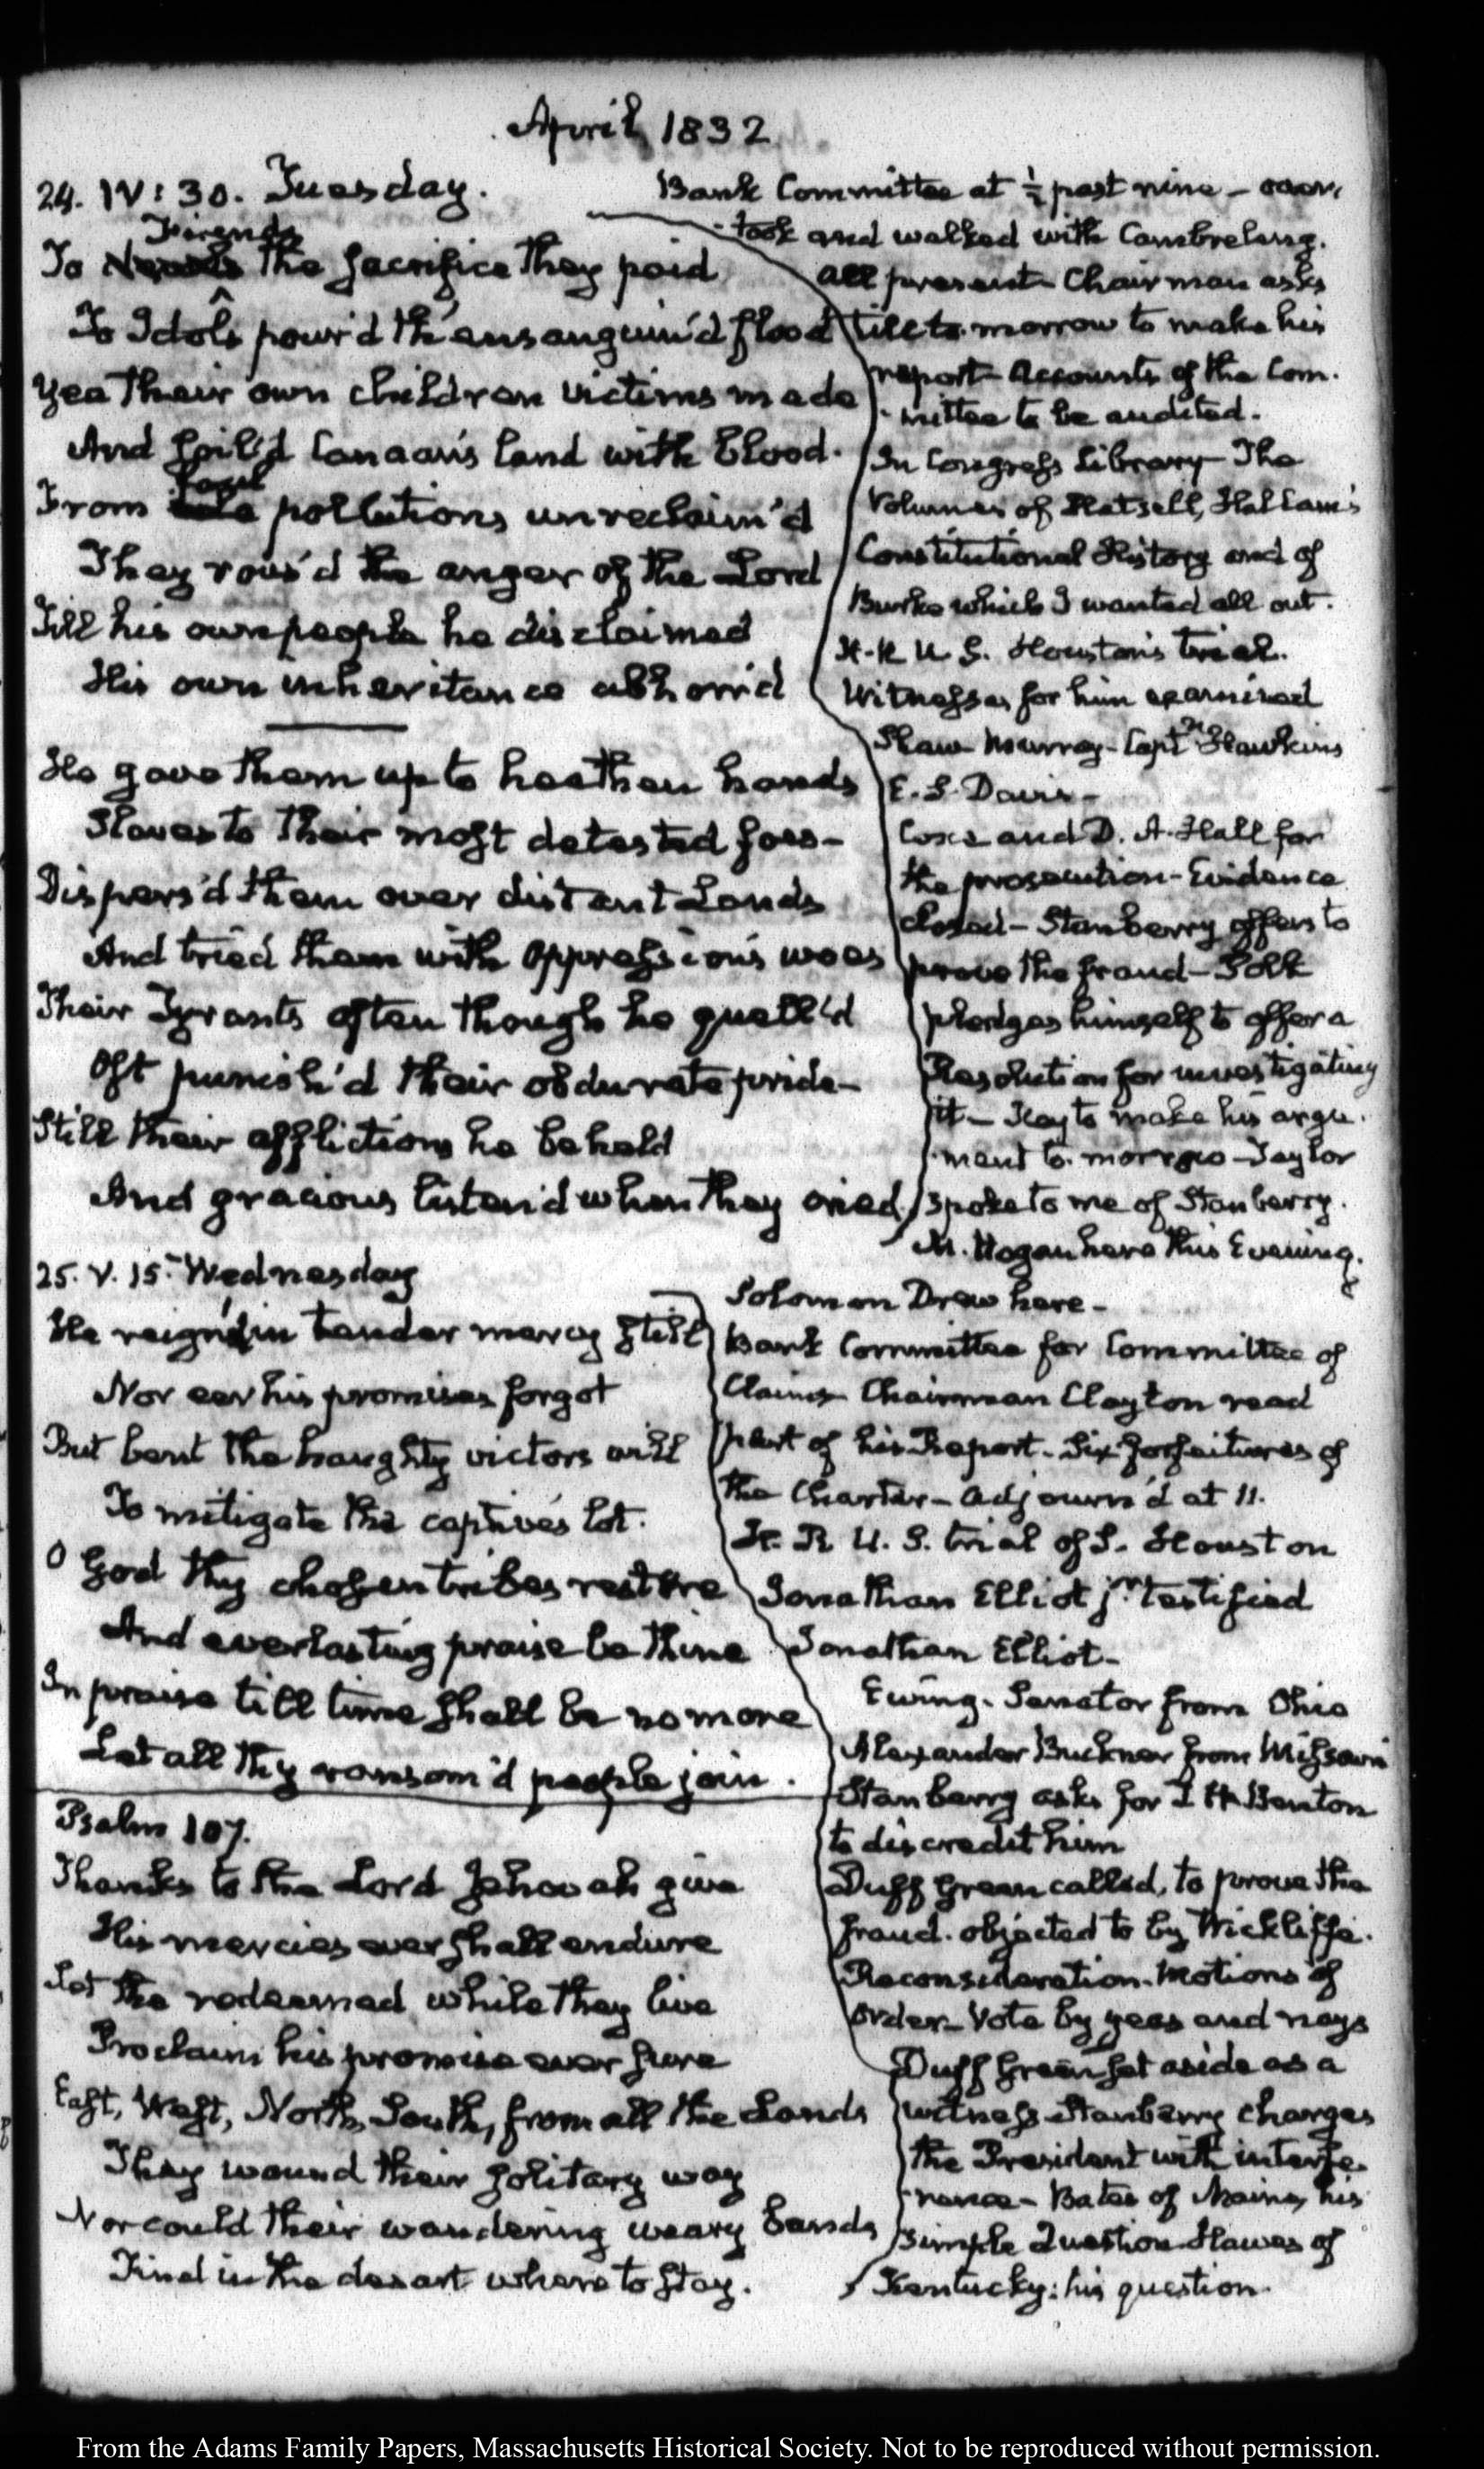 April 1832
24. IV: 30. Tuesday.
Friends
To the sacrifice they paid
To Idols pour'd th' ensanguin'd flood
Yea their own children victims made
And soil'd Canaan's land with blood.
foul
From pollutions unreclaim'd
They rous'd the anger of the Lord
Till his own people he disclaimed
His own inheritance abhorr'd
He gave them up to heathen hands
Slaves to their most detested foes -
Dispers'd them over distant Lands
And tried them with oppression's woes
Their Tyrants often though he quell'd
Oft punish'd their obdurate pride -
Still their afflictions he beheld
And gracious listen'd when they cried
Bank Committee at ½ past nine - over,
-took and walked with Cambreleng.
all present - Chairman asks
till to-morrow to make his
report - Accounts of the Com-
-mittee to be audited.
In Congress Library - The
Volumes of Hatsell, Hallam's
Constitutional History and of
Burke which I wanted all out.
H. R U. S. Houston's trial.
Witnesses for him examined
Shaw - Murray - Captn Hawkins
E. S. Davis -
Coxe and D. A. Hall for
the prosecution - Evidence
closed - Stanberry offers to
prove the fraud - Polk
pledges himself to offer a
Resolution for investigating
it - Key to make his argu-
-ment to-morrow - Taylor
spoke to me of Stanberry.
M. Hogan here this Evening.
25. V. 15. Wednesday
He reign'd in tender mercy still
Nor ear his promises forgot
But bent the haughty victors will
To mitigate the captive's lot.
O God thy chosen tribes restore
And everlasting praise be thine
In praise till time shall be no more
Let all thy ransom'd people join.
Psalm 107.
Thanks to the Lord Jehovah give
His mercies ever shall endure
Let the redeemed while they live
Proclaim his promise ever sure
East, West, North, South, from all the Lands
They wound their solitary way
Nor could their wandering weary bands
Find in the desart where to stay.
Solomon Drew here -
Bank Committee for Committee of
Claims - Chairman Clayton read
part of his Report - Six forfeitures of
the Charter - Adjourn'd at 11.
H. R U. S. trial of S. Houston
Jonathan Elliot jr. testified
Jonathan Elliot -
Ewing - Senator from Ohio
Alexander Buckner from Missouri
Stanberry asks for T H Benton
to discredit him
Duff Green called, to prove the
fraud. objected to by Wickliffe.
Reconsideration. Motions of
order - Vote by yeas and nays
Duff Green set aside as a
witness - Stanberry charges
the President with interfe-
-rence - Bates of Maine, his
simple Question - Hawes of
Kentucky: his question.
From the Adams Family Papers, Massachusetts Historical Society. Not to be reproduced without permission.